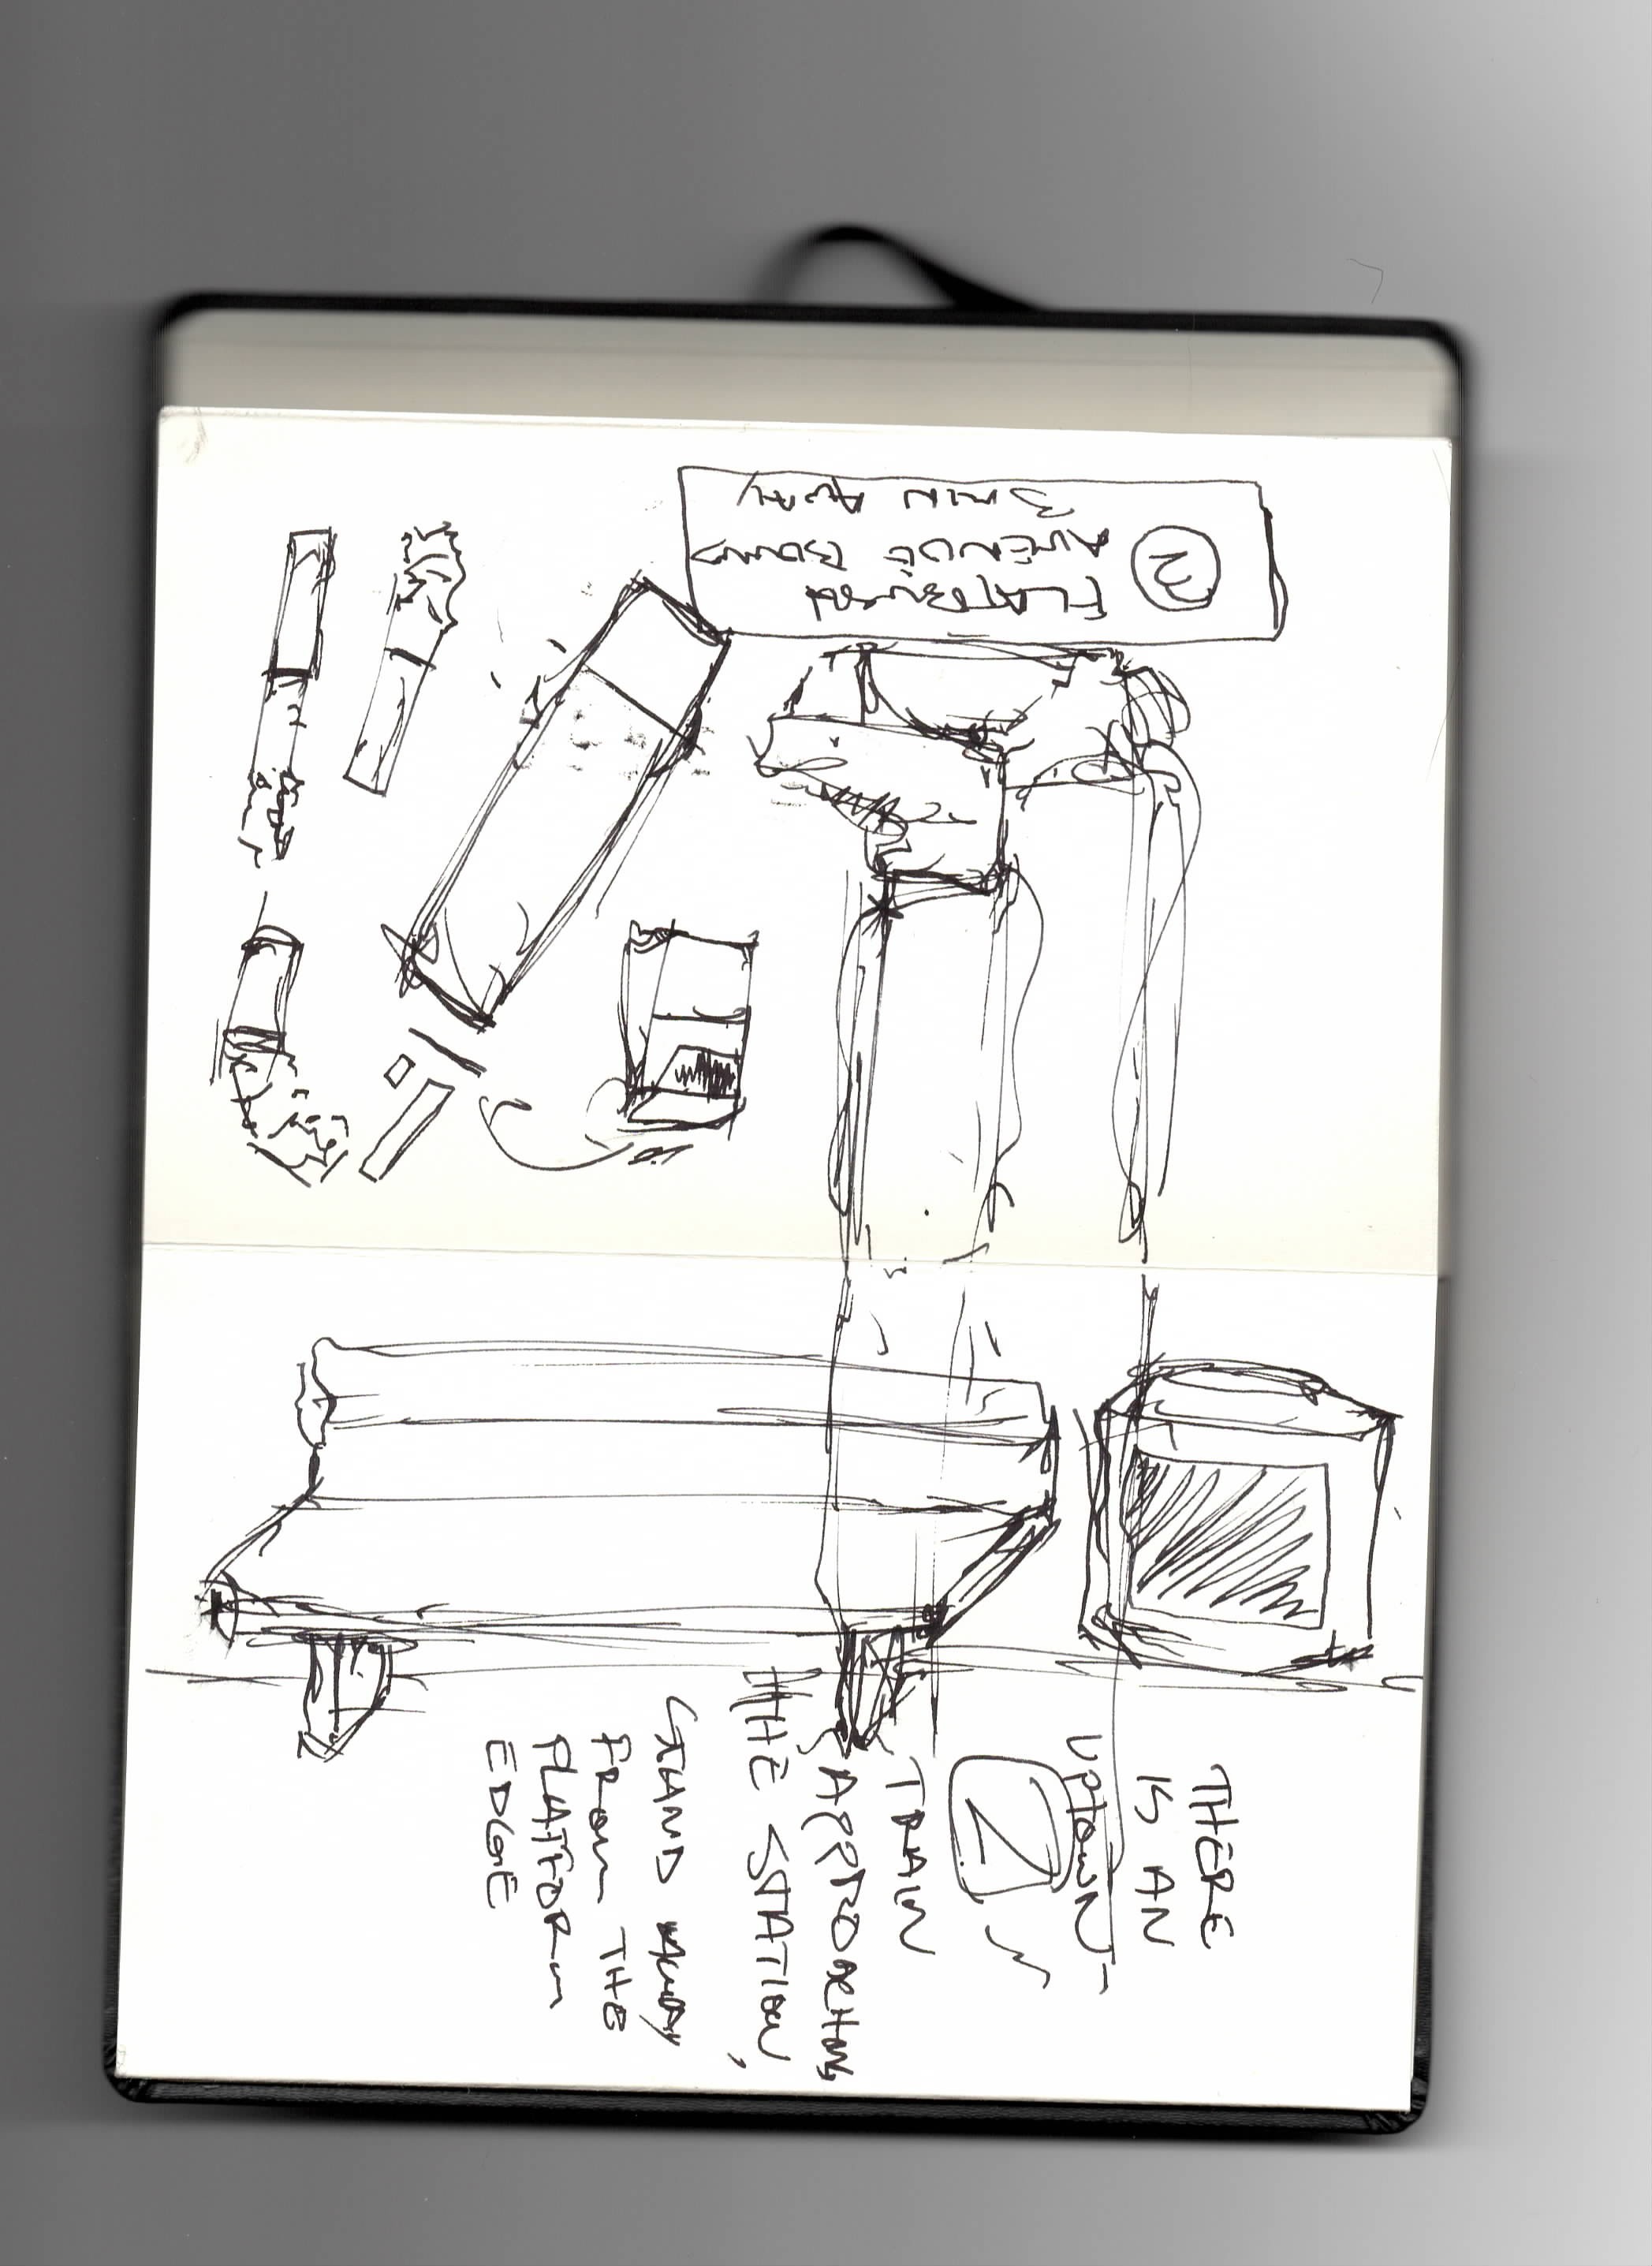 2
FLATBUSH
AVENUE BOUND
3 MIN AWAY
THERE
IS AN
UPTOWN
2
TRAIN
APPROACHING
THE STATION,
STAND AWAY
FROM THE
PLATFORM
EDGE